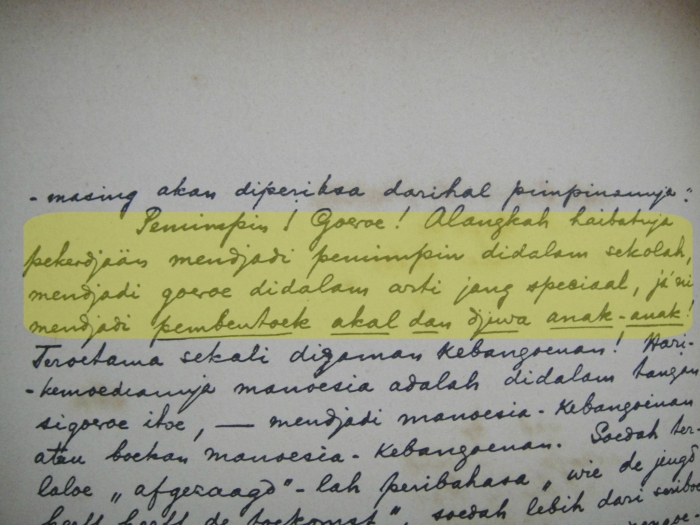 -masing akan diperiksa darihal pimpinannja:
Pemimpin! Goeroe! Alangkah haibatnja
pekerdjaän mendjadi pemimpin didalam sekolah,
mendjadi goeroe didalam arti jang speciaal, ja'ni
mendjadi pembentoek akal dan djiwa anak-anak!
Teroetama sekali dizaman kebangoenan! Hari-
-kemoediannja manoesia adalah didalam tangan
sigoeroe itoe, — mendjadi manoesia-Kebangoenan
atau boekan manoesia-Kebangoenan. Soedah ter-
laloe „afgezaagd"-lah peribahasa „wie de jeugd
heeft heeft de toekomst", soedah lebih dari seriboe